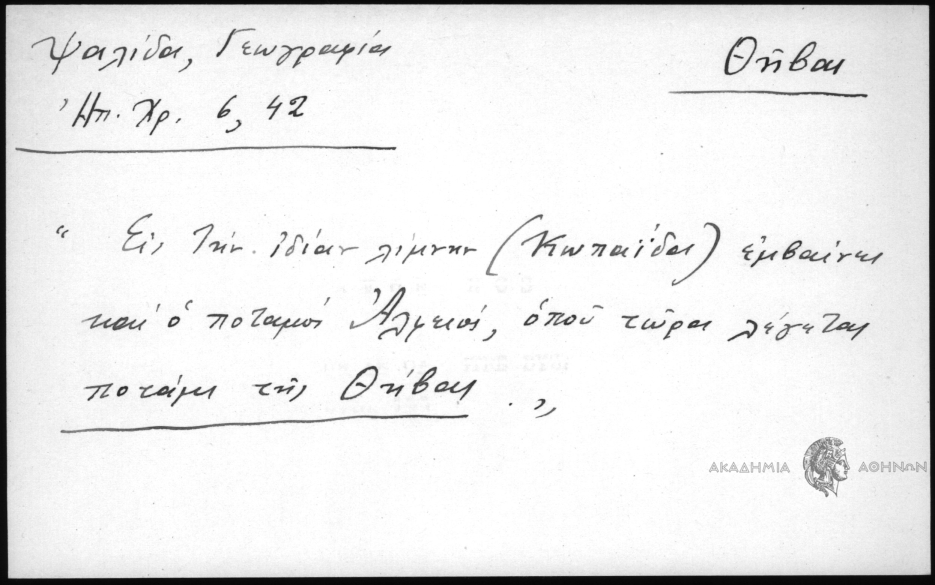 Ψαλίδα, Γεωγραφία
Θῆβαι
Ἠπ. Χρ. 6, 42
“ Εἰς τὴν ἰδίαν λίμνην (Κωπαΐδα) ἐμβαίνει
καὶ ὁ ποταμὸς Ἀλφειός, ὁποῦ τώρα λέγεται
ποτάμι τῆς Θήβας . „
ΑΚΑΔΗΜΙΑ ΑΘΗΝΩΝ